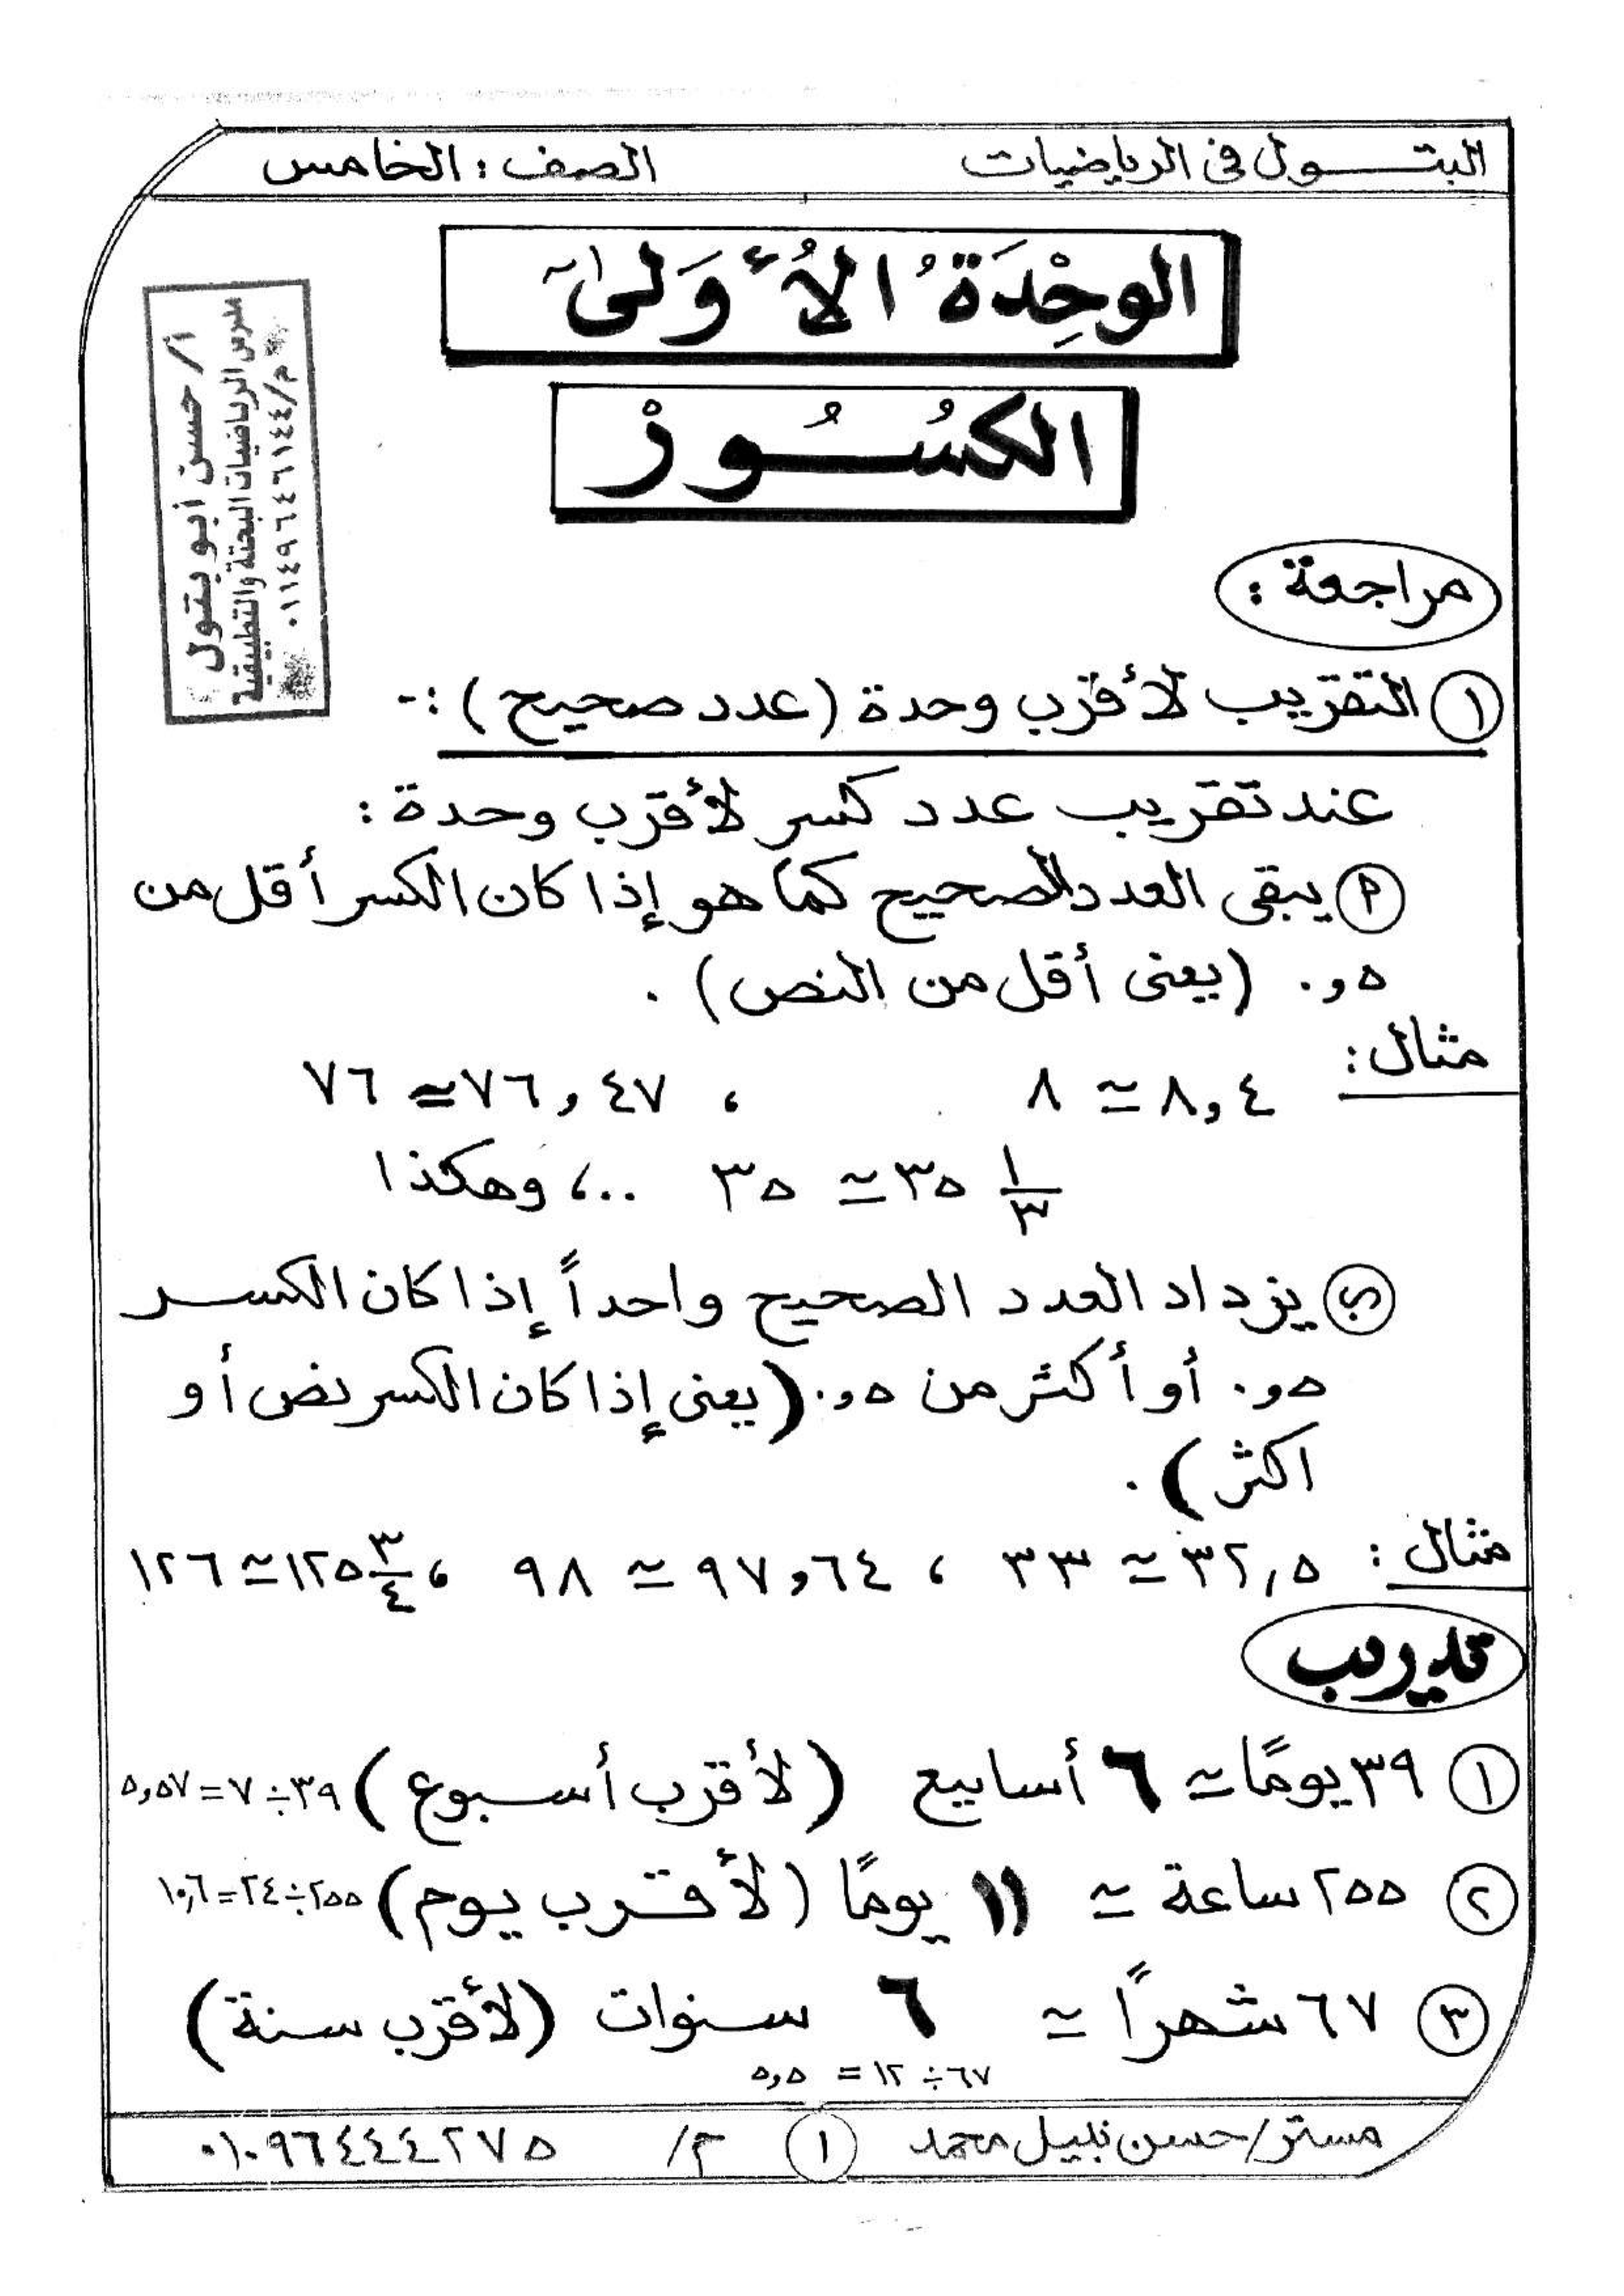 البتـــول فى الرياضيات الصف : الخامس
الوحِدْةَُ الأُوَلىَ
الكسُـــُورْ
أ/ حسن ابو بتول
مدرس الرياضيات البحتة والتطبيقية
م/٠١١٤٩٦٤٦١٤٤
مراجعة :
١ التقريب لأقرب وحدة (عدد صحيح) :-
عند تقريب عدد كسر لأقرب وحدة :
٢ يبقى العدد الصحيح كما هو إذا كان الكسر أقل من
٠,٥ (يعنى أقل من النص) .
مثال : ٨,٤ ≃ ٨ ، ٧٦,٤٧ ≃ ٧٦
٣٥ ١/٣ ≃ ٣٥ ..، وهكذا
ب يزداد العدد الصحيح واحداً إذا كان الكسـر
٠,٥ أو أكثر من ٠,٥ (يعنى إذا كان الكسر نص أو
اكثر) .
مثال : ٣٢,٥ ≃ ٣٣ ، ٩٧,٦٤ ≃ ٩٨ ، ١٢٥ ٣/٤ ≃ ١٢٦
تدريب
١ ٣٩ يومًا ≃ ٦ أسابيع (لأقرب أسبوع) ٣٩÷٧=٥,٥٧
٢ ٢٥٥ ساعة ≃ ١١ يومًا (لأقرب يوم) ٢٥٥÷٢٤=١٠,٦
٣ ٦٧ شهرًا ≃ ٦ سنوات (لأقرب سنة)
٦٧÷١٢ = ٥,٥
مستر/ حسن نبيل محمد ١ م/ ٠١٠٩٦٤٤٤٢٧٥